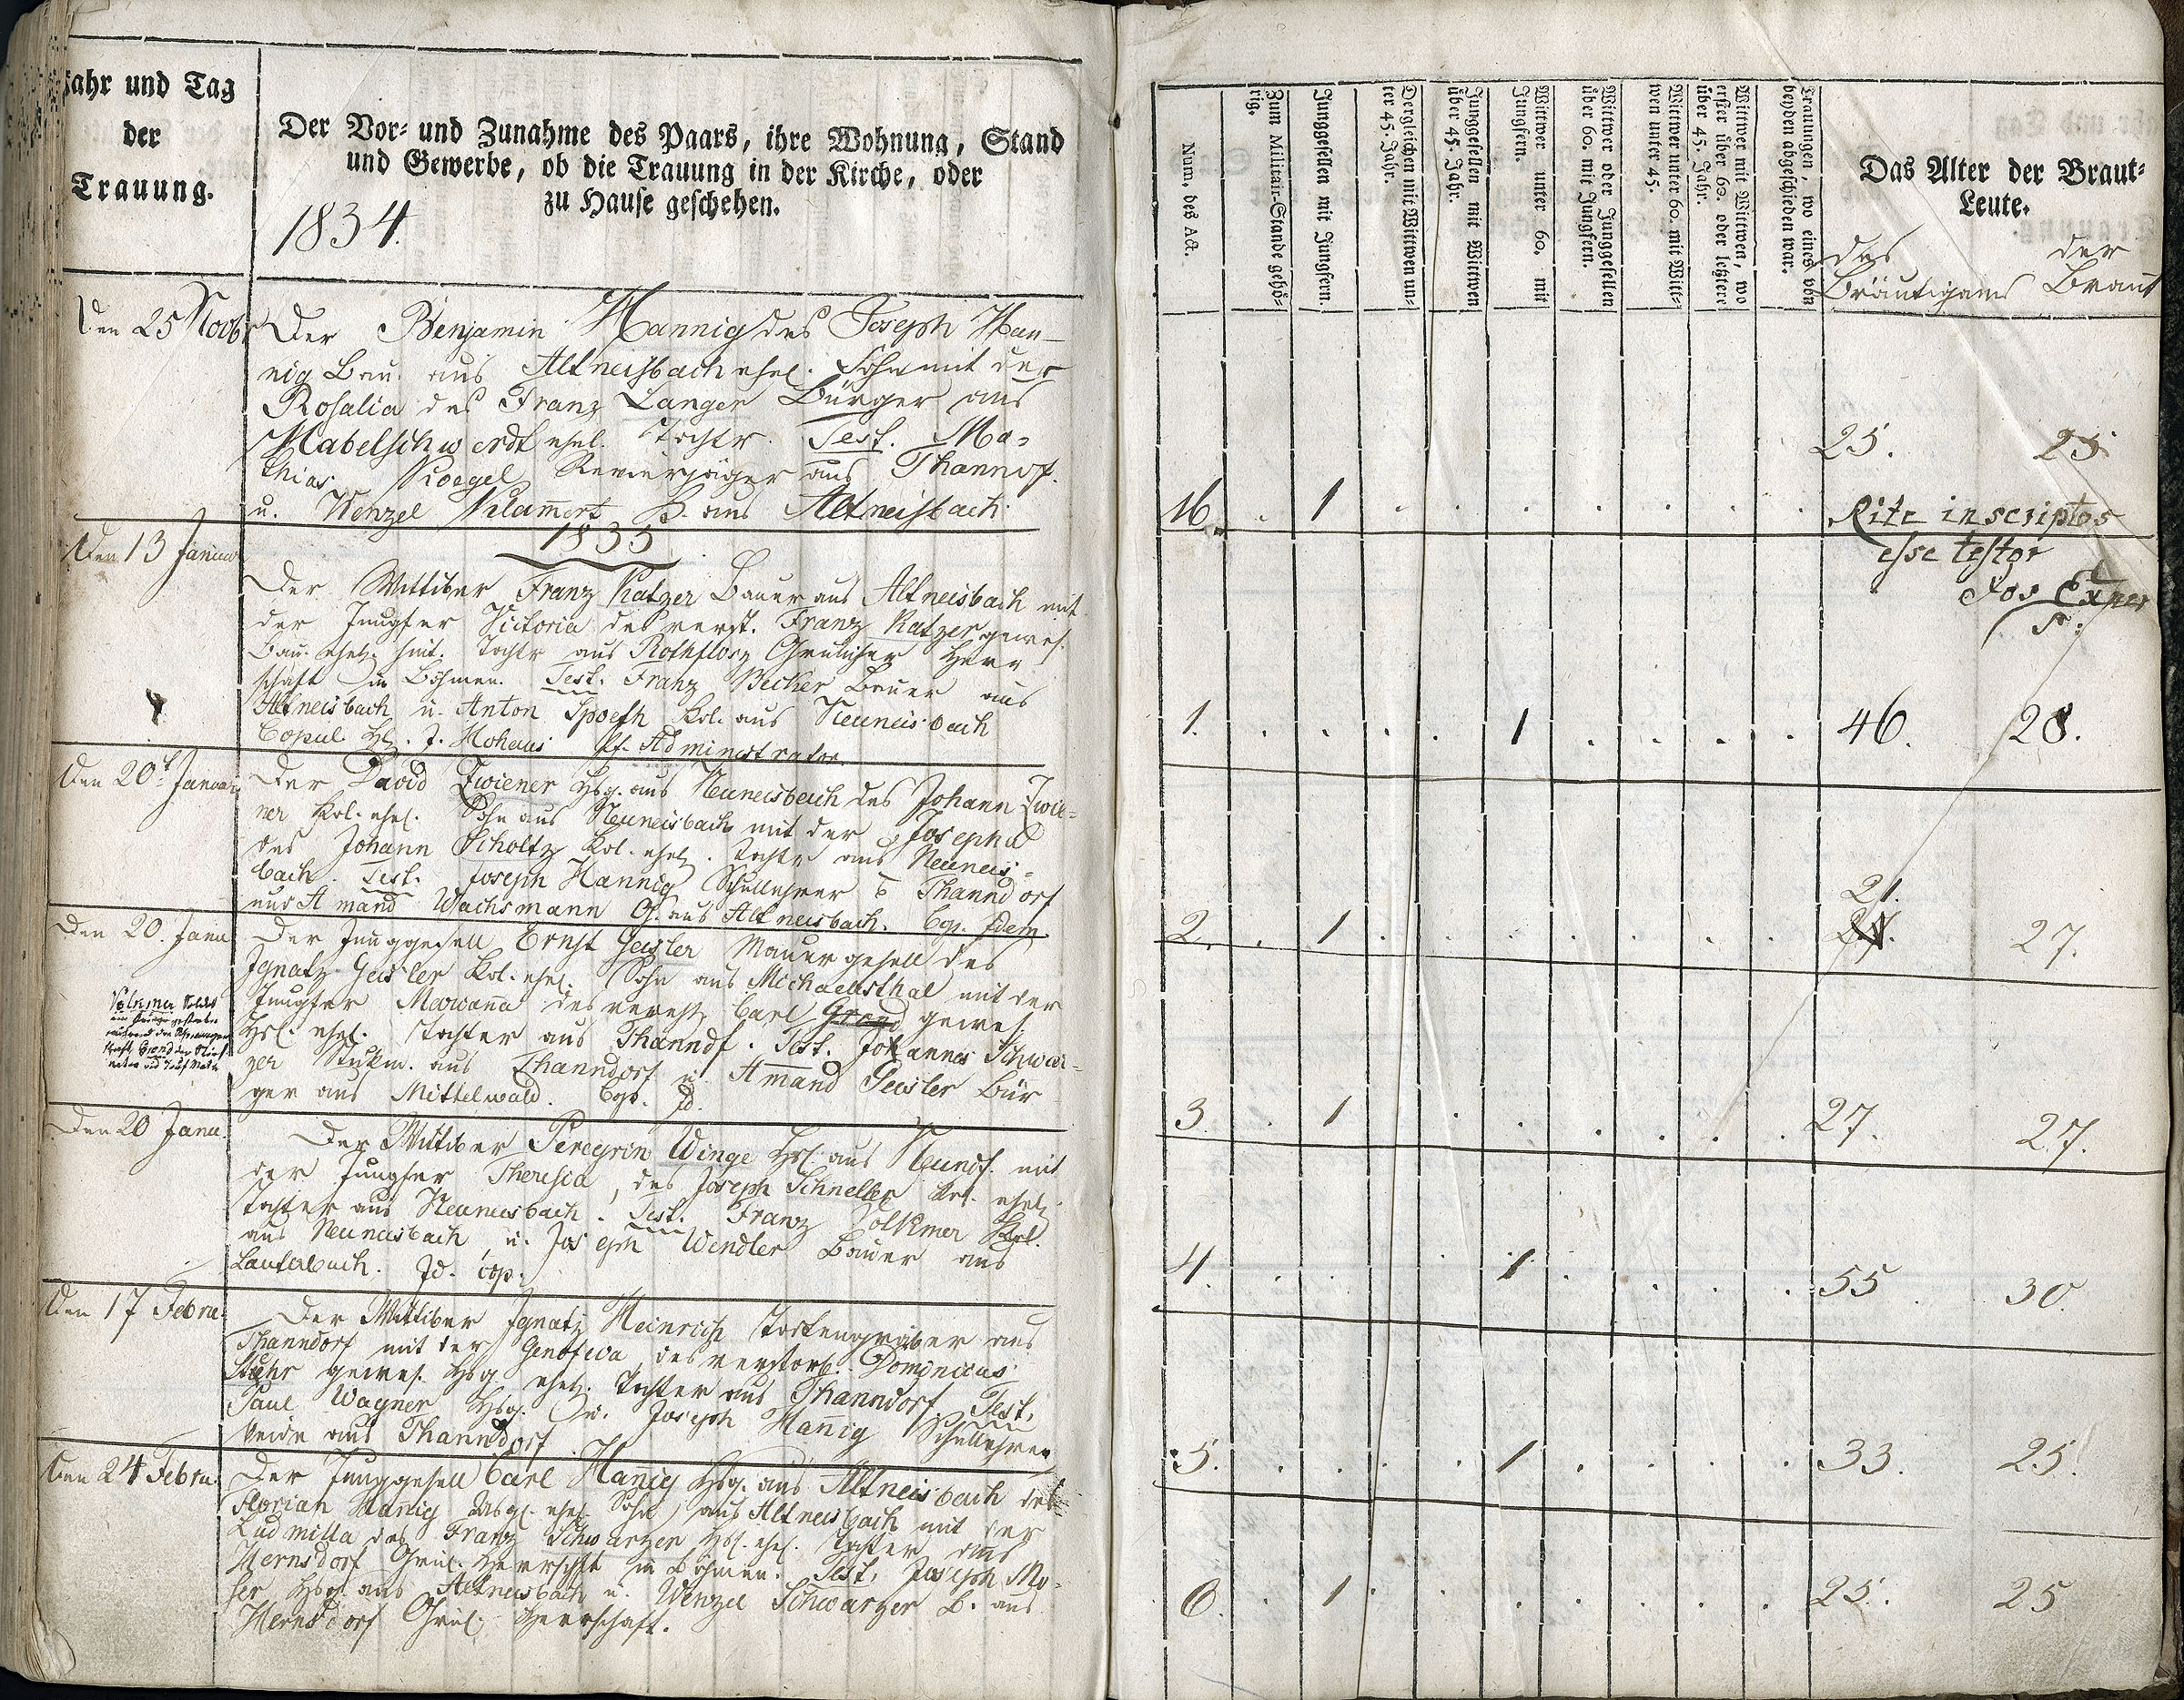 Jahr und Tag
der
Trauung.
Der Vor- und Zunahme des Paars, ihre Wohnung, Stand
und Gewerbe, ob die Trauung in der Kirche, oder
zu Hause geschehen.
1834.
Den 25 Novbr
Der Benjamin Hannig des Joseph Han-
nig Bau. aus Altneisbach ehel. Sohn mit der
Rosalia des Franz Langer Bürger aus
Habelschwerdt ehel. Tochtr. Test. Ma-
thias Koegel Revierjäger aus Thanndf.
u. Wenzel Klam̅ert B. aus Altneisbach.
1835
Den 13 Januar
Der Wittiber Franz Katzer Bauer aus Altneisbach mit
der Jungfer Victoria des verst. Franz Katzer gewes.
Bau. ehel. hint. Tochtr aus Rothflosz Grulicher Herr
schaft in Böhmen. Test. Franz Becker Bauer aus
Altneisbach u. Anton Spoeth Kol. aus Neuneisbach
Copul. J. Hohaus Pf. Administrator.
Den 20t Januar
Der David Zwiener Hsg. aus Neuneisbach des Johann Zwie-
ner Kol. ehel. Sohn aus Neuneisbach mit der Josepha
des Johann Scholtz Kol. ehel. Tochtr aus Neuneis-
bach. Test. Joseph Hannig Schullehrer Thanndorf
und Amand Wachsmann aus Altneisbach. Cop. Idem.
Den 20. Janu
Der Junggesell Ernst Geisler Mauergesell des
Ignatz Geisler Kol. ehel. Sohn aus Michaelsthal mit der
Jungfer Marian̅a des verst. Carl Grond gewes.
Hsl. ehel. Tochter aus Thanndf. Test. Johannes Schwar-
zer Stukm. aus Thanndorf u. Amand Geisler Bür
ger aus Mittelwald. Cop. Id.
Den 20 Janu.
Der Wittiber Peregrin Winge Hsl. aus Neundf. mit
der Jungfer Theresia, des Joseph Schneller Kol. ehel.
Tochter aus Neuneisbach. Test. Franz Volkmer Kol.
aus Neuneisbach u. Joseph Wendler Bauer aus
Lauterbach. Id. cop.
Den 17 Febru.
Der Wittiber Ignatz Heinrich Todtengräber aus
Thanndorf mit der Genofeva, des verstorb. Dominicus
Stuhr gewes. Hsg. ehel. Tochter aus Thanndorf. Test.
Paul Wagner Hsg. u. Joseph Han̅ig Schullehrer
beide aus Thanndorf
Den 24 Febru.
Der Junggesell Carl Han̅ig Hsg. aus Altneisbach des
Florian Han̅ig ehel. Sohn aus Altneisbach mit der
Ludmilla des Franz Schwarzer Hsl. ehel. Tochter aus
Hernsdorf Grul. Herrschft in Böhmen. Test. Joseph Mo-
ser Hsg. aus Altneisbach u. Wenzel Schwarzer B. aus
Hernsdorf Grul. Herrschaft.
Num. des Act.
Zum Militair-Stande gehö-
rig.
Junggesellen mit Jungfern.
Dergleichen mit Wittwen un-
ter 45. Jahr.
Junggesellen mit Wittwen
über 45. Jahr.
Wittwer unter 60. mit
Jungfern.
Wittwer oder Junggesellen
über 60. mit Jungfern.
Wittwer unter 60. mit Witt-
wen unter 45.
Wittwer mit Wittwen, wo
erster über 60. oder letztere
über 45. Jahr.
Trauungen, wo eines von
beyden abgeschieden war.
Das Alter der Braut-
Leute.
des der
Bräutigams Braut
25. 25
16. . 1 . . . . . . .
Rite inscriptos
esse testor
Jos Exner
1. . . . . 1 . . . . 46. 28.
21.
2. . 1 . . . . . . . 27.
3. . 1 . . . . . . 27. 27.
4. . . . . 1 . . . . 55. 30.
5. . . . . 1 . . . . 33. 25.
6. . 1 . . . . . . 25. 25